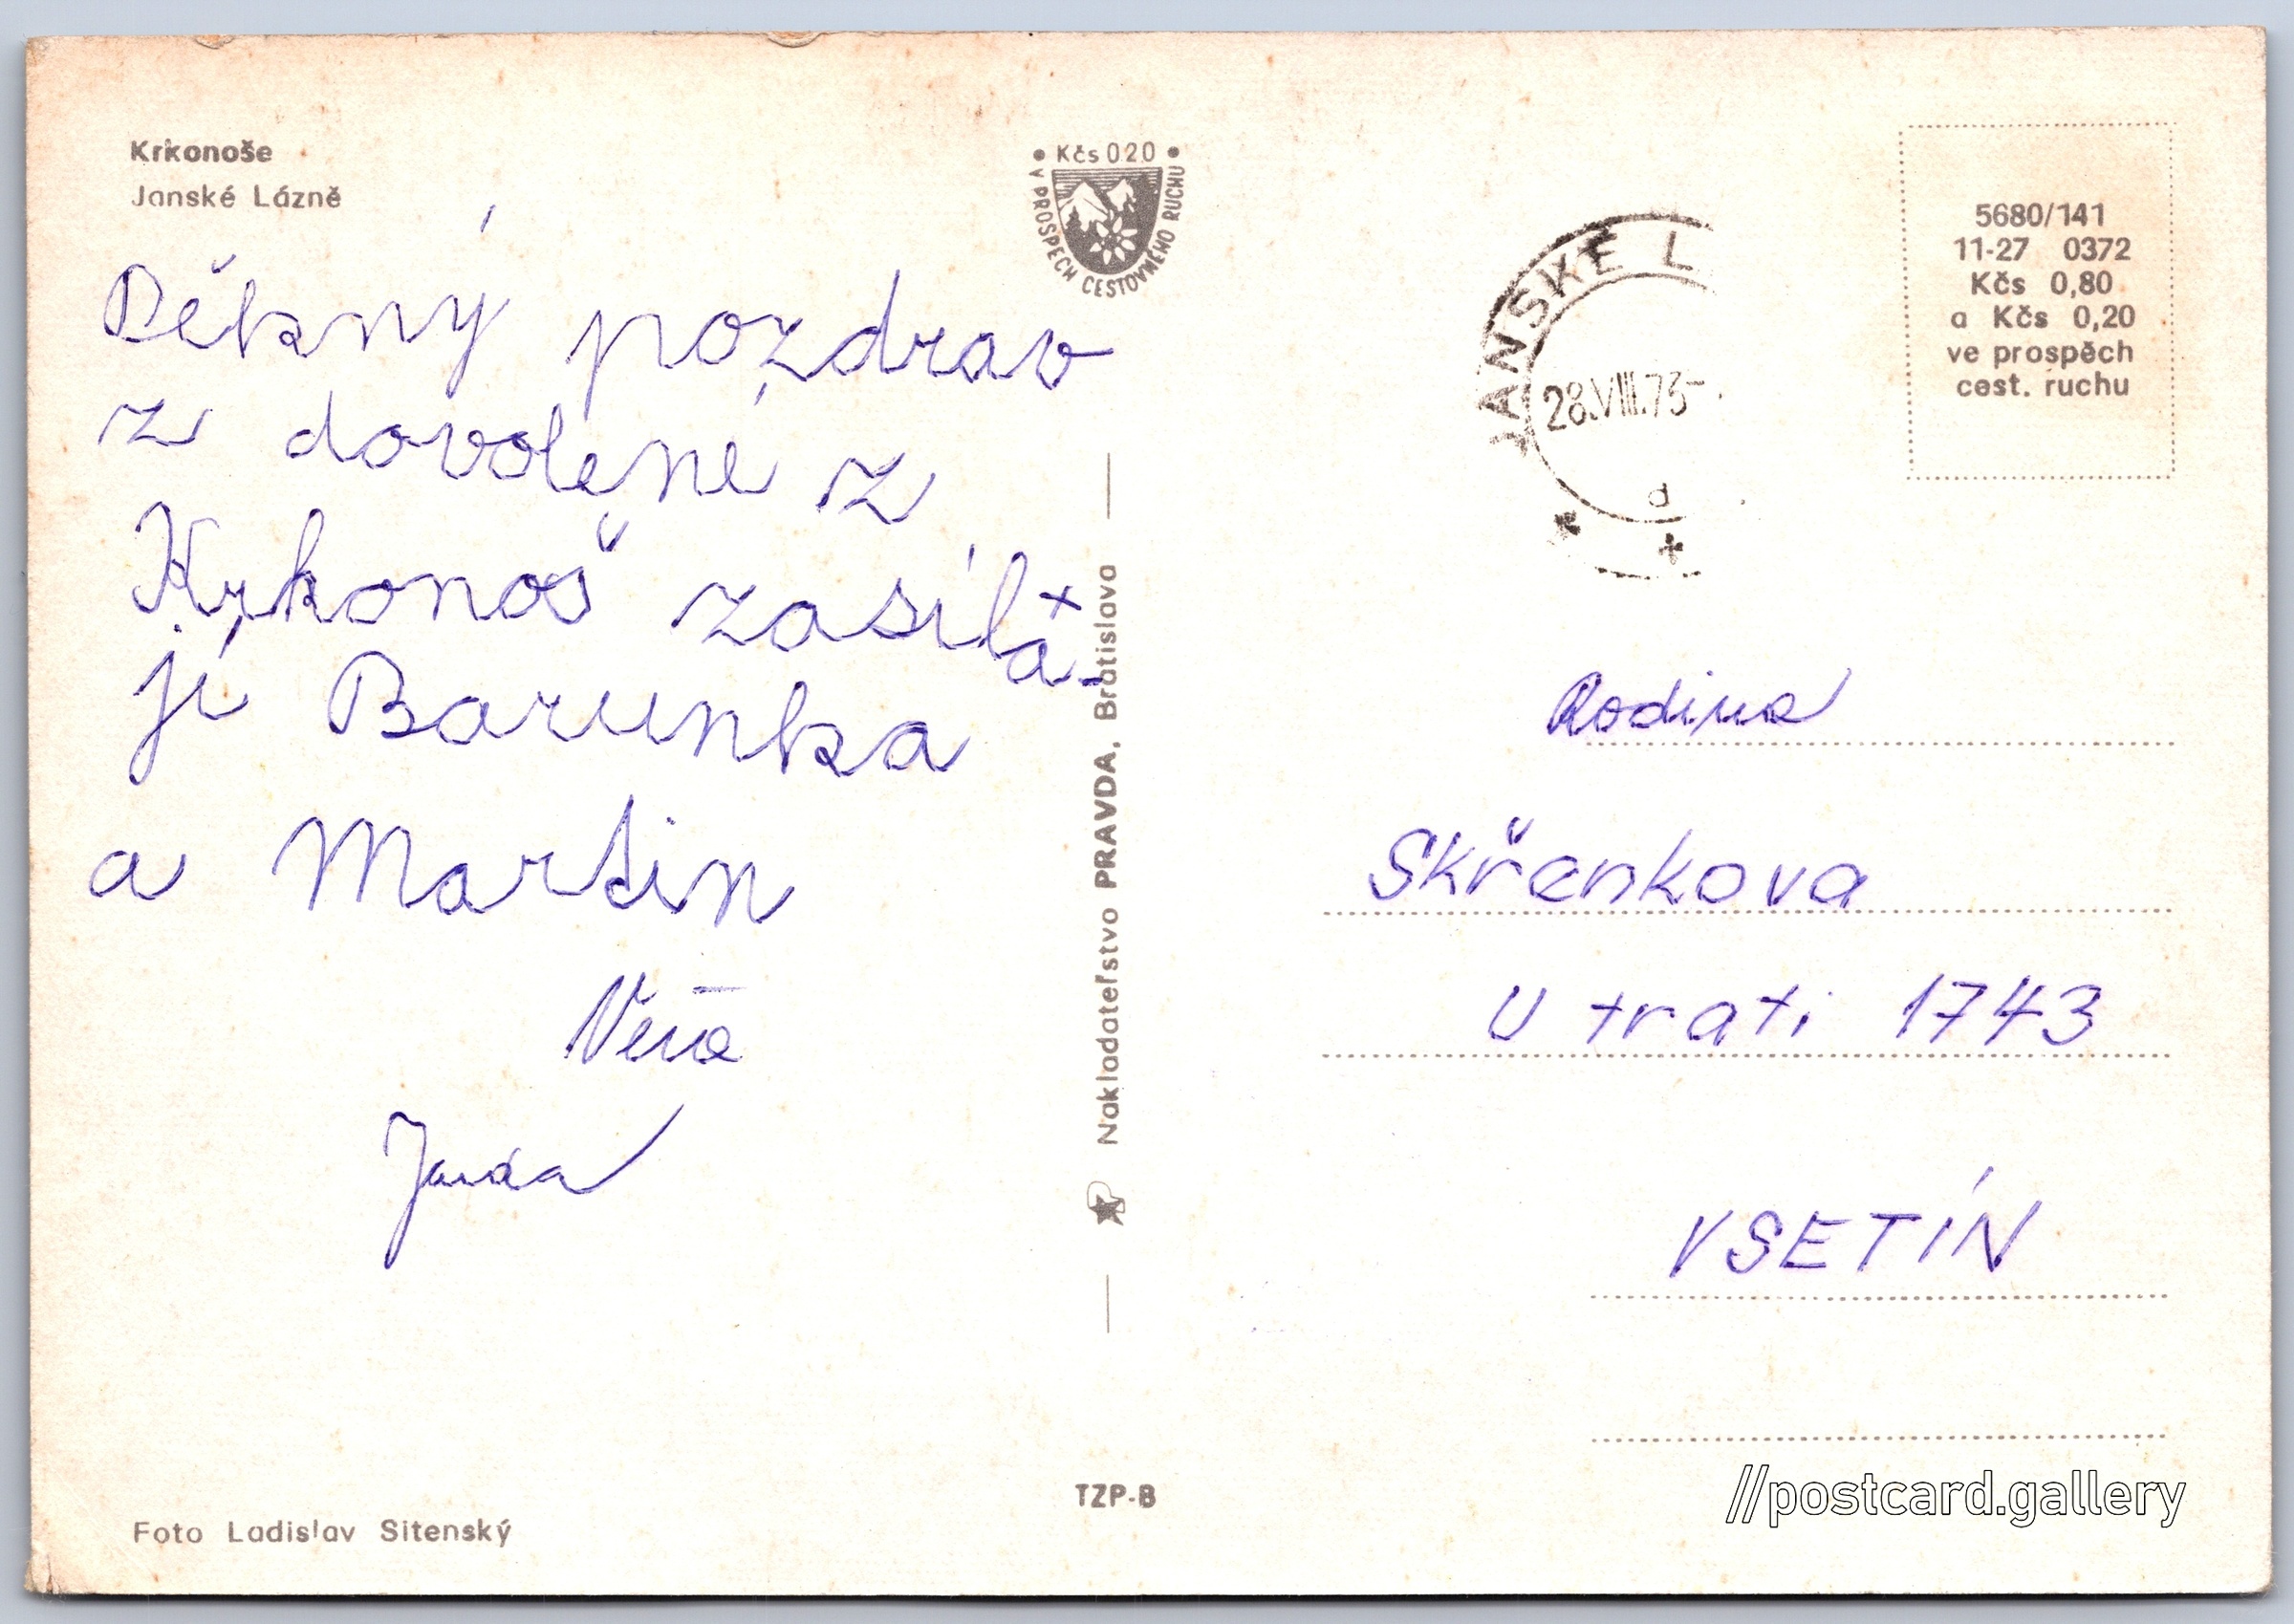 Krkonoše
Janské Lázně
Děkný pozdrav
z dovolené z
Krkonoš zasílá-
jí Barunka
a Martin
Věra
Jarda
Foto Ladislav Sitenský
• Kčs 020 •
V PROSPECH CESTOVNÉHO RUCHU
Nakladateľstvo PRAVDA, Bratislava
TZP-B
JANSKÉ L
28.VIII.73-
d
5680/141
11-27 0372
Kčs 0,80
a Kčs 0,20
ve prospěch
cest. ruchu
Rodina
Skřenkova
U trati 1743
VSETÍN
//postcard.gallery